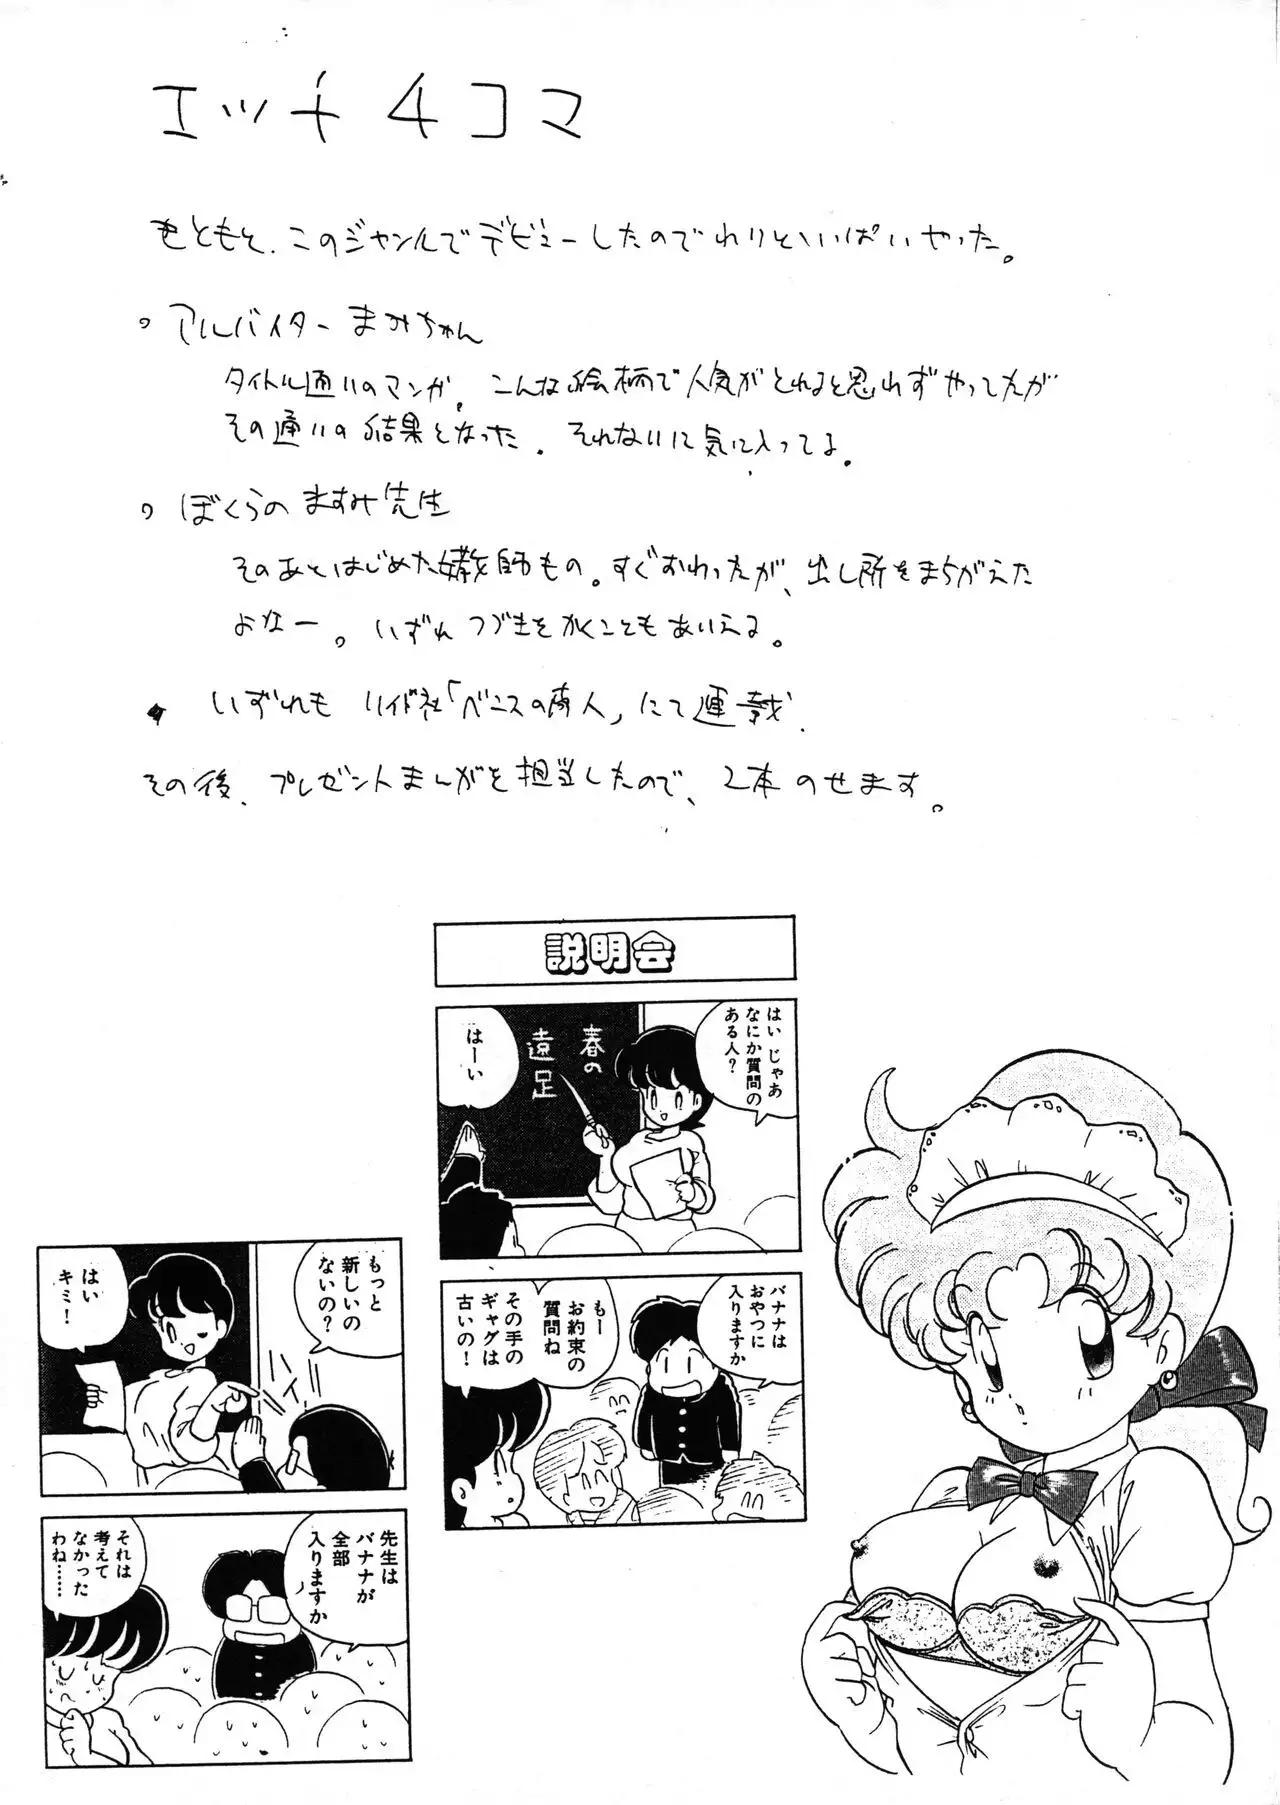 エッチ4コマ
もともと、このジャンルでデビューしたのでわりといっぱいやった。
アルバイターまみちゃん
タイトル通りのマンガ。こんな絵柄で人気がとれると思れずやってたが
その通りの結果となった。それないに気に入ってる。
ぼくらのますみ先生
そのあとはじめた女教師もの。すぐおわったが、出し所をまちがえた
よなー。いずれつづきをかくこともあいえる。
いずれも リイド社「ベニスの商人」にて連載.
その後、プレゼントまんがを担当したので、2本のせます。
説明会
はい じゃあ
なにか質問の
ある人?
はーい
春の
遠足
バナナは
おやつに
入りますか
もー
お約束の
質問ね
その手の
ギャグは
古いの!
もっと
新しいの
ないの?
はい
キミ!
ハイ
先生は
バナナが
全部
入りますか
それは
考えて
なかった
わね……